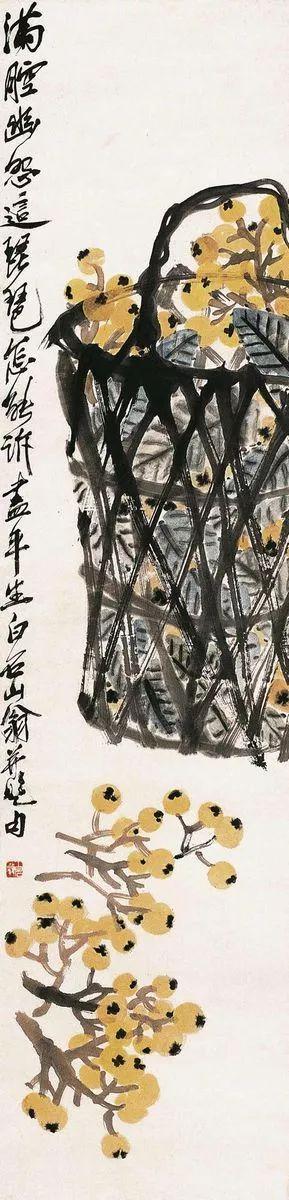 满腔幽怨這琵琶怎能訴盡平生白石山翁并題句